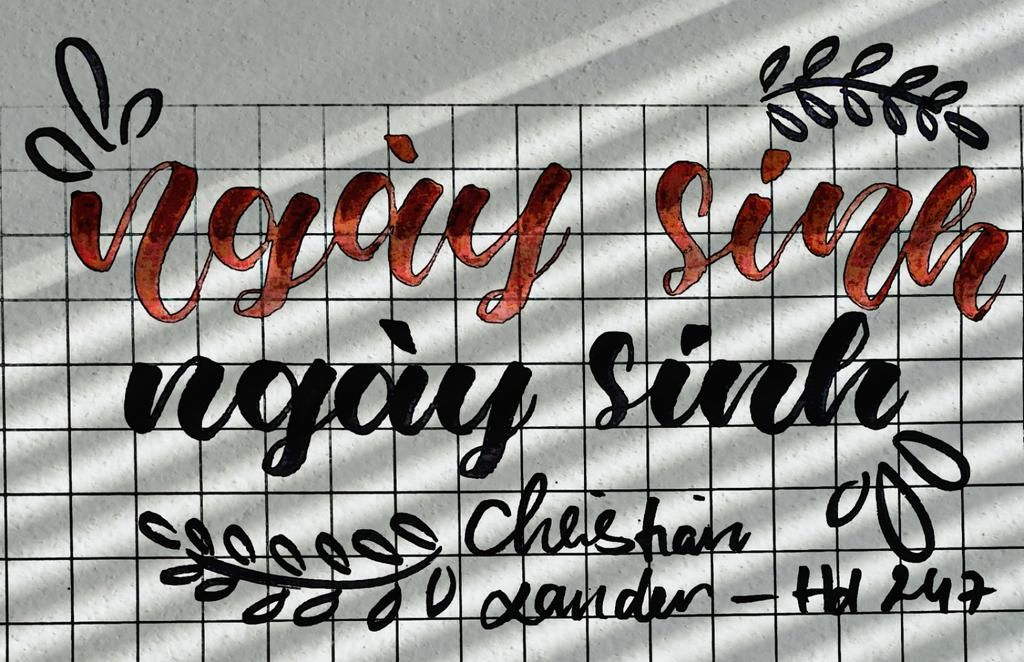 ngày sinh
ngày sinh
Christian
Lander - Hd 247